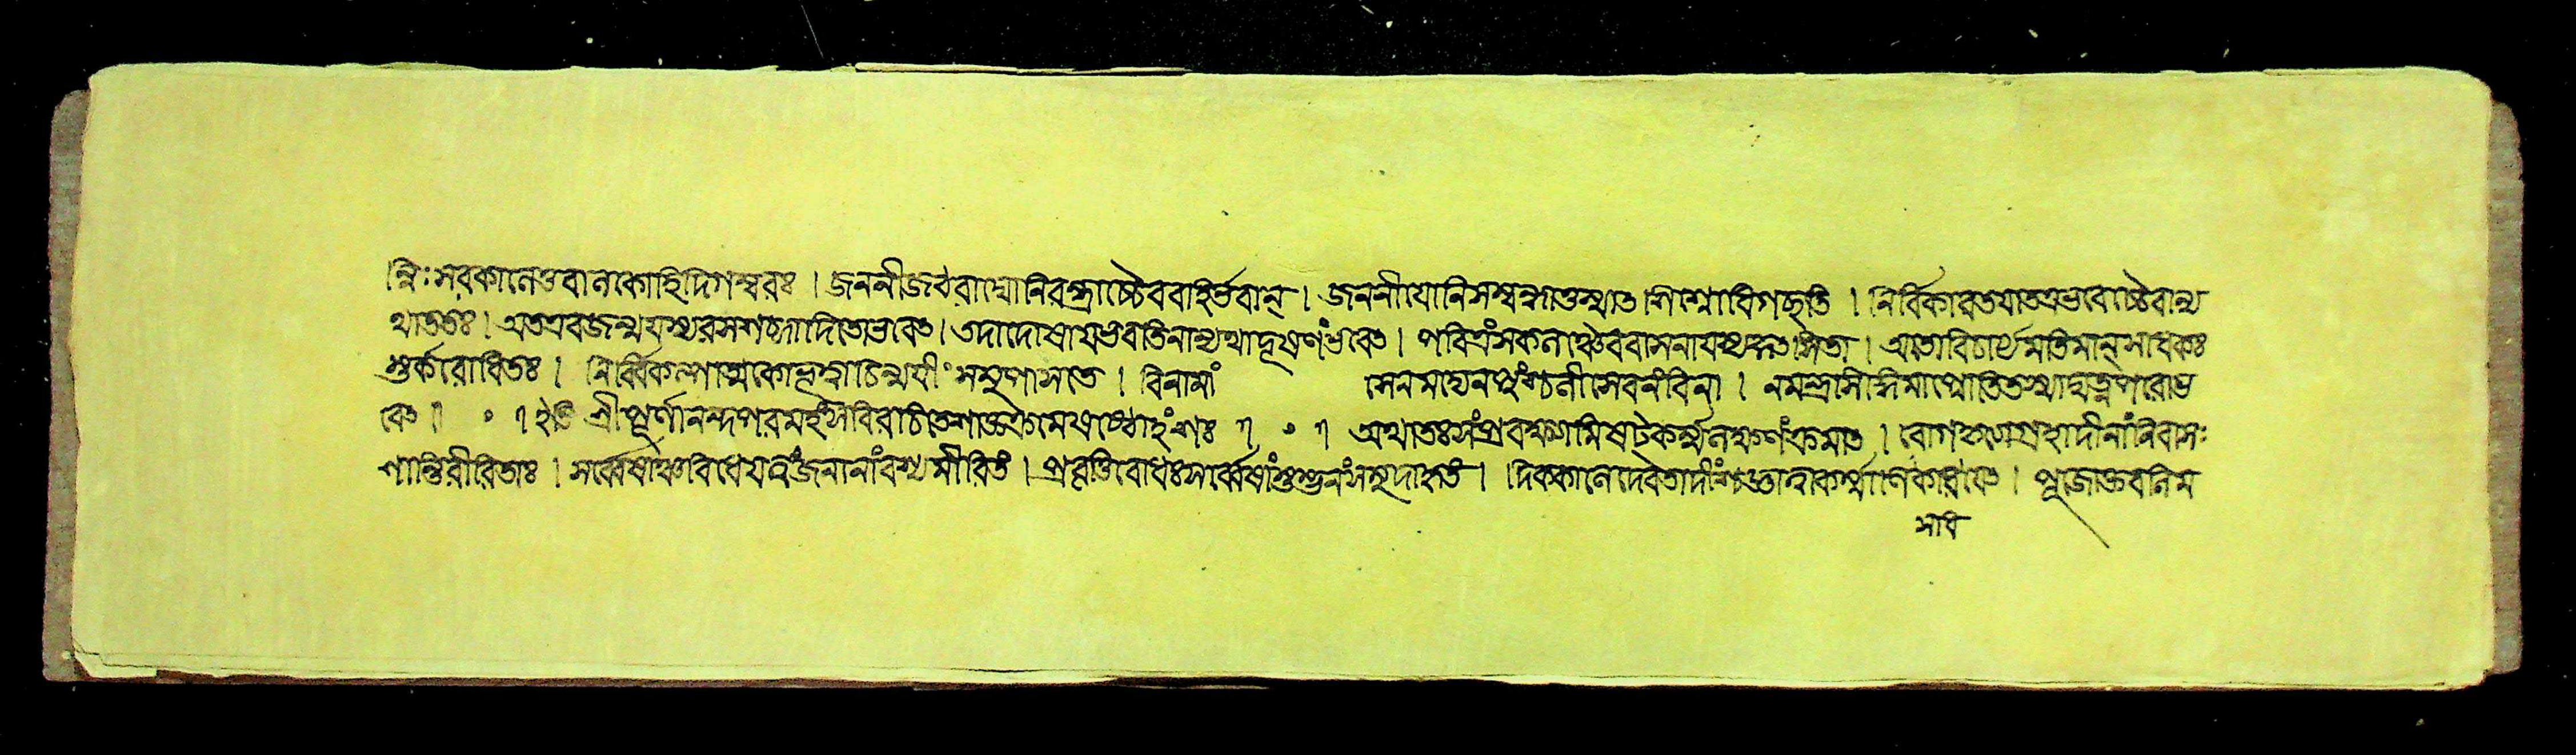 ন্নিঃসরকালেভবানকোহিদিগম্বরঃ । জননীজঠরাদ্যোনিরন্ধ্রাচ্চৈববহির্ভবান্ । জননীযোনিসম্বন্ধাত্তস্মাত শিশ্নোধিগচ্ছতি । নির্বিকারতযাতত্রভবেচ্চৈবান্য
থাততঃ । অতএবজন্ম রসশব্দাদিতোভবেৎ । তদাদোষাযভবতিনান্যথাদূষণংভবেৎ । পবিত্রংসকলাঞ্চৈববাসনা । অতোবিচার্যমতিমান্সাধকঃ
শুর্কারোধিতঃ । নির্ব্বিকল্পাত্মকোভূত্বাচিন্ময়ীং সমুপাসতে । বিনামাং সেনমদ্যেনপুংশ্চলীসেবনংবিনা । নমন্ত্রাসিদ্ধিমাপ্নোতিতস্মাদ্যত্নপরোভ
বেৎ । ০ । ইতি শ্রীপূর্ণানন্দপরমহংসবিরচিতেশাক্তক্রমেষষ্ঠোহংশঃ । ০ । অথাতঃসংপ্রবক্ষ্যামিষটকর্ম্মলক্ষণংক্রমাত । রোগকৃত্যাগ্রহাদীনাংনিবাসঃ
শান্তিরীরিতাঃ । সর্ব্বেষাঞ্চবিধেযত্বংজনানাংবশ্যমীরিতং । প্রবৃত্তিরোধঃসর্ব্বেষাংস্তম্ভনংসমুদাহৃতং । দিককালেদেবতাদীংশ্চজ্ঞাত্বাকর্ম্মাণিকারযেৎ । পূজাস্তবনিম
সাধি